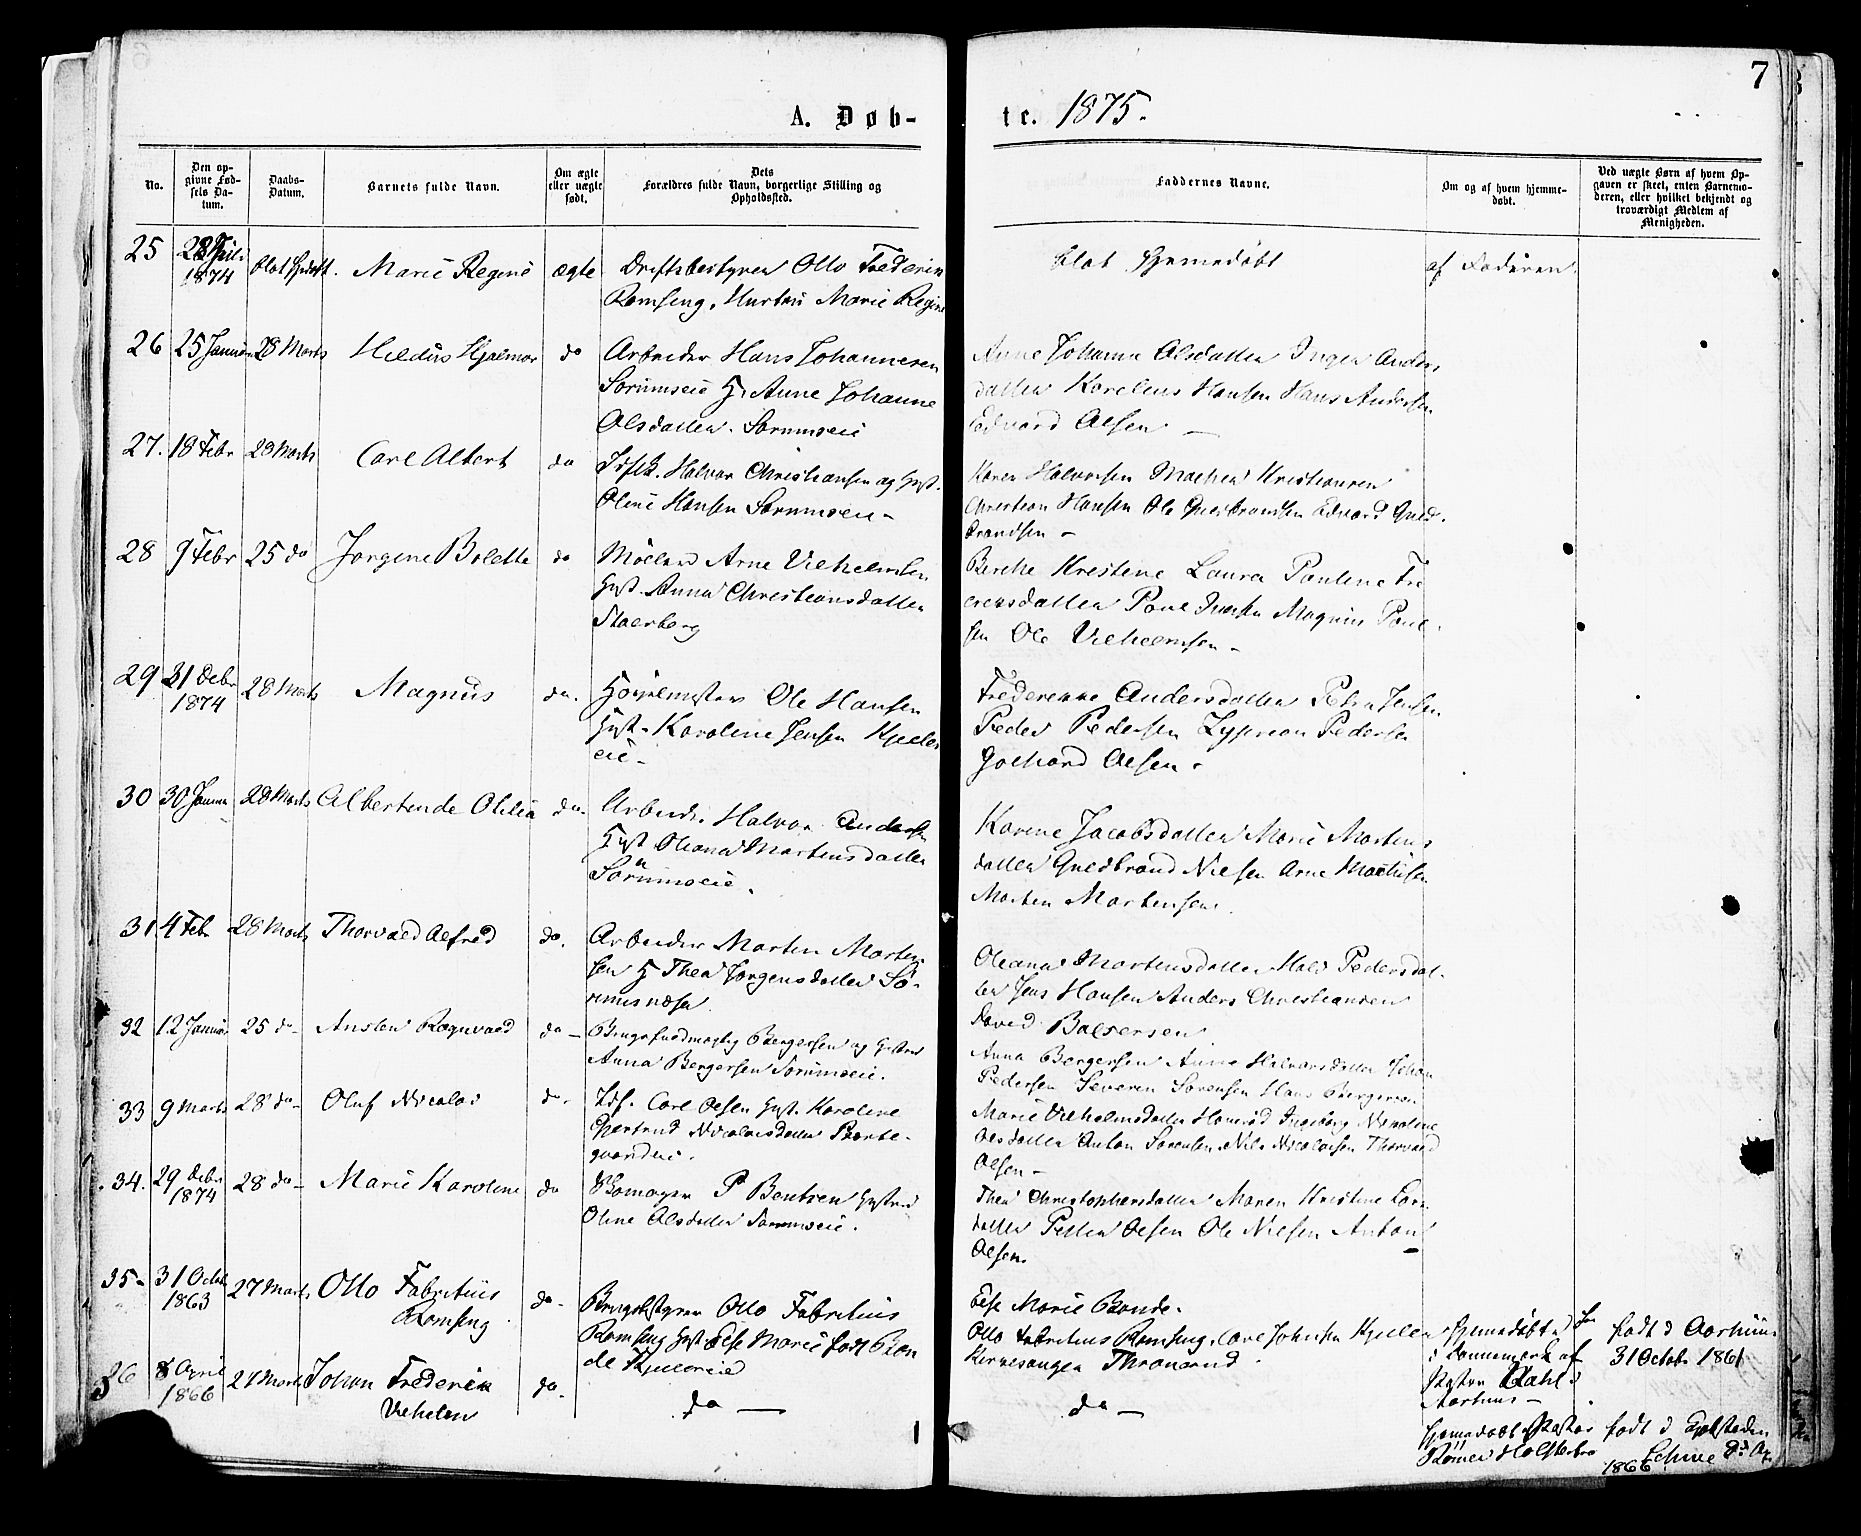 7
A. Døb-
te. 1875.
No.
Den op-
givne Fød-
sels Da-
tum.
Daabs-
Datum.
Barnets fulde Navn.
Om ægte
eller uægte
født.
Dets
Forældres fulde Navn, borgerlige Stilling og
Opholdssted.
Faddernes Navne.
Om og af hvem hjemme-
døbt.
Ved uægte Børn af hvem Op-
gaven er skeet, enten Barnemo-
deren, eller hvilket bekjendt og
troværdigt Medlem af
Menigheden.
25 28 Juli 1874 Blot hjdøbt. Marie Regine ægte Driftsbestyrer Otto Frederik
Romsing, Hustru Marie Regine
blot Hjemmedøbt af Faderen.
26 25 Januar 28 Marts Hildus Hjalmar do Arbeider Hans Johannesen
Sørumseie H. Anne Johanne
Olsdatter. Sørumseie
Anne Johanne Olsdatter Inger Anders
datter Karelius Hansen Hans Andersen
Edvard Olsen —
27. 18 Febr 28 Marts Carl Albert do Halvor Christiansen og Hust.
Oline Hansen Sørumseie -
Karen Halvorsen Mathea Kristiansen
Christian Hansen Ole Guldbrandsen Edvard Guld-
brandsen -
28 9 Febr 25 do Jørgine Bolette do Møller Arne Vilhelmsen
Hust. Anna Christiansdatter
Berthe Kristine Laura Pauline
Poul Magnus Poul-
sen Ole Vilhelmsen -
29 31 Debr 1874 28 Marts Magnus do. Ole Hansen
Hust. Karoline Jensen Kjeller
eie -
Frederikke Andersdatter Petra Jensen
Peder Pedersen Zyprian Pedersen
Gothard Olsen -
30 30 Januar 28 Marts Albertine Otilia do. Arbeider Halvor Andersen
Hust Oleana Mortensdatter
Sørumseie.
Karine Jacobsdatter Marie Mortens
datter Guldbrand Nilsen Arne Mathisen
Morten Mortensen.
31. 4 Febr 28 Marts Thorvald Alfred do. Arbeider Morten Morten
sen H Thea Jørgensdatter Sø-
rumsnæsa
Oleana Mortensdatter Pedersdat-
ter Jens Hansen Anders Christiansen
David Baltersen
32 12 Januar 25 do - Ansten Ragnvald do - Brugsfuldmægtig Bergersen og Hustru
Anna Bergersen Sørumseie.
Anna Bergersen Anne Halvorsdatter Johan
Pedersen Severin Sørensen Hans Bergersen
33 9 Marts 28 do - Oluf Nicolai do. Carl Olsen Hust. Karoline
Gjertrud Nicolaisdatter
Marie Vilhelmsdatter Ingeborg Nicoline
Olsdatter Anton Sørensen Nils Nicolaisen Thorvald
Olsen -
34. 29 Debr 1874 28 do - Marie Karoline do Skomager P Bentsen Hustru
Oline Olsdatter Sørumseie.
Thea Christophersdatter Maren Kristine Lars
datter Petter Olsen Ole Nilsen Anton
Olsen.
35 - 31 Octob 1863 27 Marts Otto Fabritius
Romsing do - Brugsbestyrer Otto Fabritius
Romsing Hust Else Marie født Bon
de Kjellereie
Else Marie Bonde.
Otto Fabritius Romsing, Carl Johnsen Kjeller
Kirkesanger Thranerud
Hjemmedøbt
i Dannemark af
Pastor Dahl i
Aarhuus -
født i Aarhuus
31 Octobr 1861
36 8 April 1866 27 Marts Johan Frederik
Vilhelm do - do —
do —
Hjemmedøbt af Pastor
Rømer i Holsterbro
født i
1866